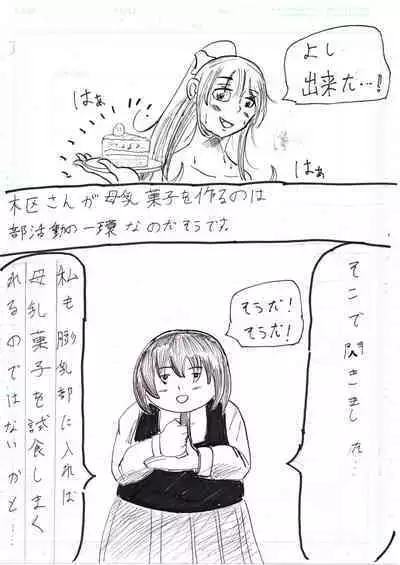 よし
出来た…!
はぁ
はぁ
木区さんが母乳菓子を作るのは
部活動の一環なのだそうです。
そこで閃きました…
そうだ!
そうだ!
私も膨乳部に入れば
母乳菓子を試食しまく
れるのではないかと…